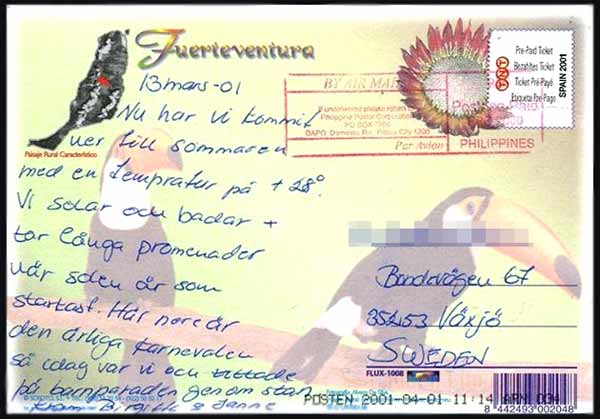 Fuerteventura
13 mars-01
Nu har vi kommit
ner till sommaren
med en tempratur på +28°.
Vi solar och badar +
tar långa promenader
när solen är som
starkast. Här nere är
den årliga karnevalen
så idag var vi och tittade
på barnparaden genom stan
Kram Birgitta & Janne
Paisaje Rural Característico
BY AIR MAIL
If undelivered please return
Philippine Postal Corporation
PO BOX 7066
DAPO, Domestic Rd. Pasay City 1300
Par Avion
PHILIPPINES
Pre-Paid Ticket
Bezahltes Ticket
Ticket Pré-Payé
Etiqueta Pre-Pago
TNT
SPAIN 2001
Bondevägen 67
35253 Växjö
SWEDEN
FLUX-1008
POSTEN 2001-04-01 11:14 ARN 034
8 442493 002048